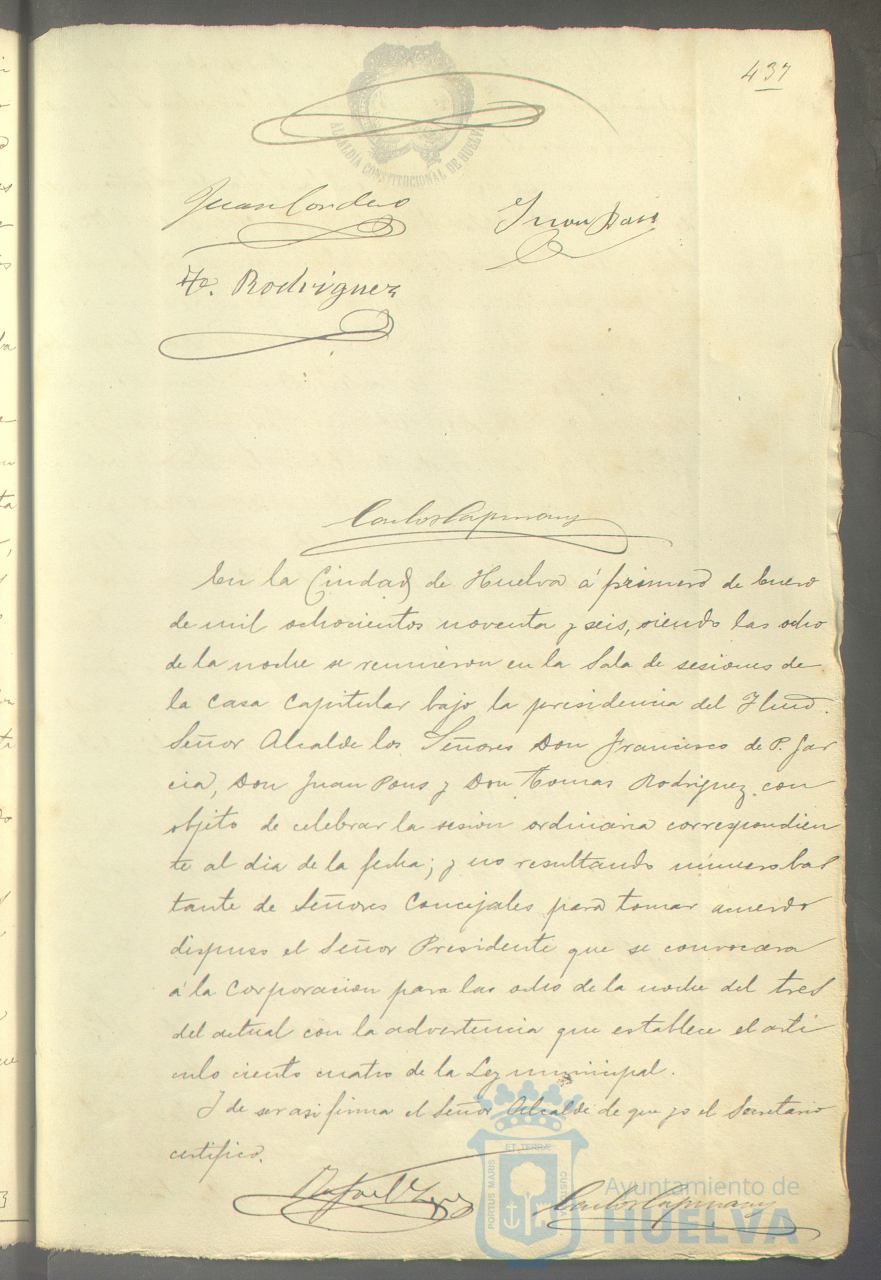 437
ALCALDIA CONSTITUCIONAL DE HUELVA
Juan Cordero
Juan Pons
To. Rodriguez
Carlos Capmany
En la Ciudad de Huelva á primero de Enero
de mil ochocientos noventa y seis, siendo las ocho
de la noche se reunieron en la Sala de sesiones de
la Casa Capitular bajo la presidencia del Iltmo.
Señor Alcalde los Señores Don Francisco de P. Gar
cia, Don Juan Pons y Don Tomas Rodriguez con
objeto de celebrar la sesion ordinaria correspondien
te al dia de la fecha; y no resultando número bas
tante de Señores Concejales para tomar acuerdo
dispuso el Señor Presidente que se convocara
á la Corporacion para las ocho de la noche del tres
del actual con la advertencia que establece el arti
culo ciento cuatro de la Ley municipal.
Y de ser asi firma el Señor Alcalde de que yo el Secretario
certifico.
Rafael
Carlos Capmany
PORTUS MARIS ET TERRÆ CUSTODIA
Ayuntamiento de
HUELVA